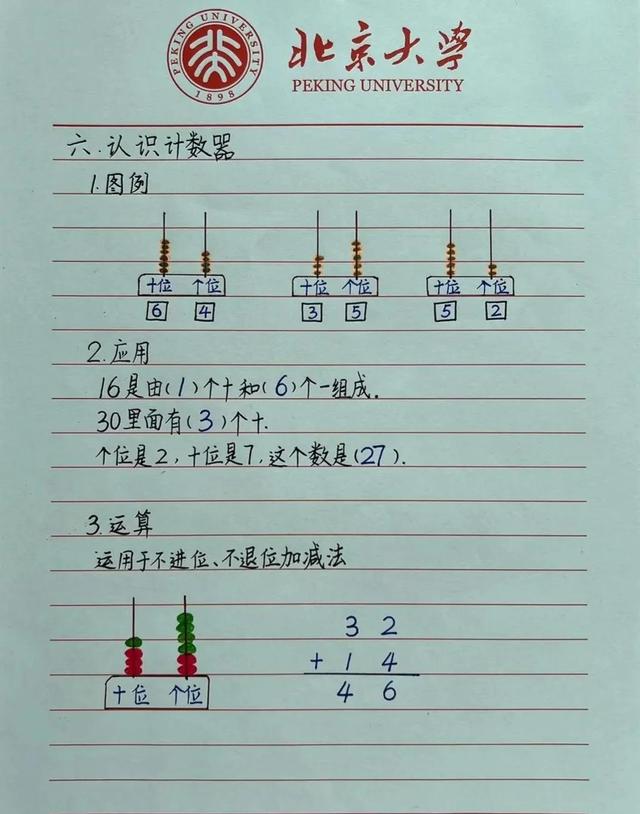 PEKING UNIVERSITY
1898
北京大学
PEKING UNIVERSITY
六.认识计数器
1.图例
十位 个位 十位 个位 十位 个位
6 4 3 5 5 2
2.应用
16是由(1)个十和(6)个一组成.
30里面有(3)个十.
个位是2,十位是7,这个数是(27).
3.运算
运用于不进位、不退位加减法
3 2
+ 1 4
十位 个位 4 6